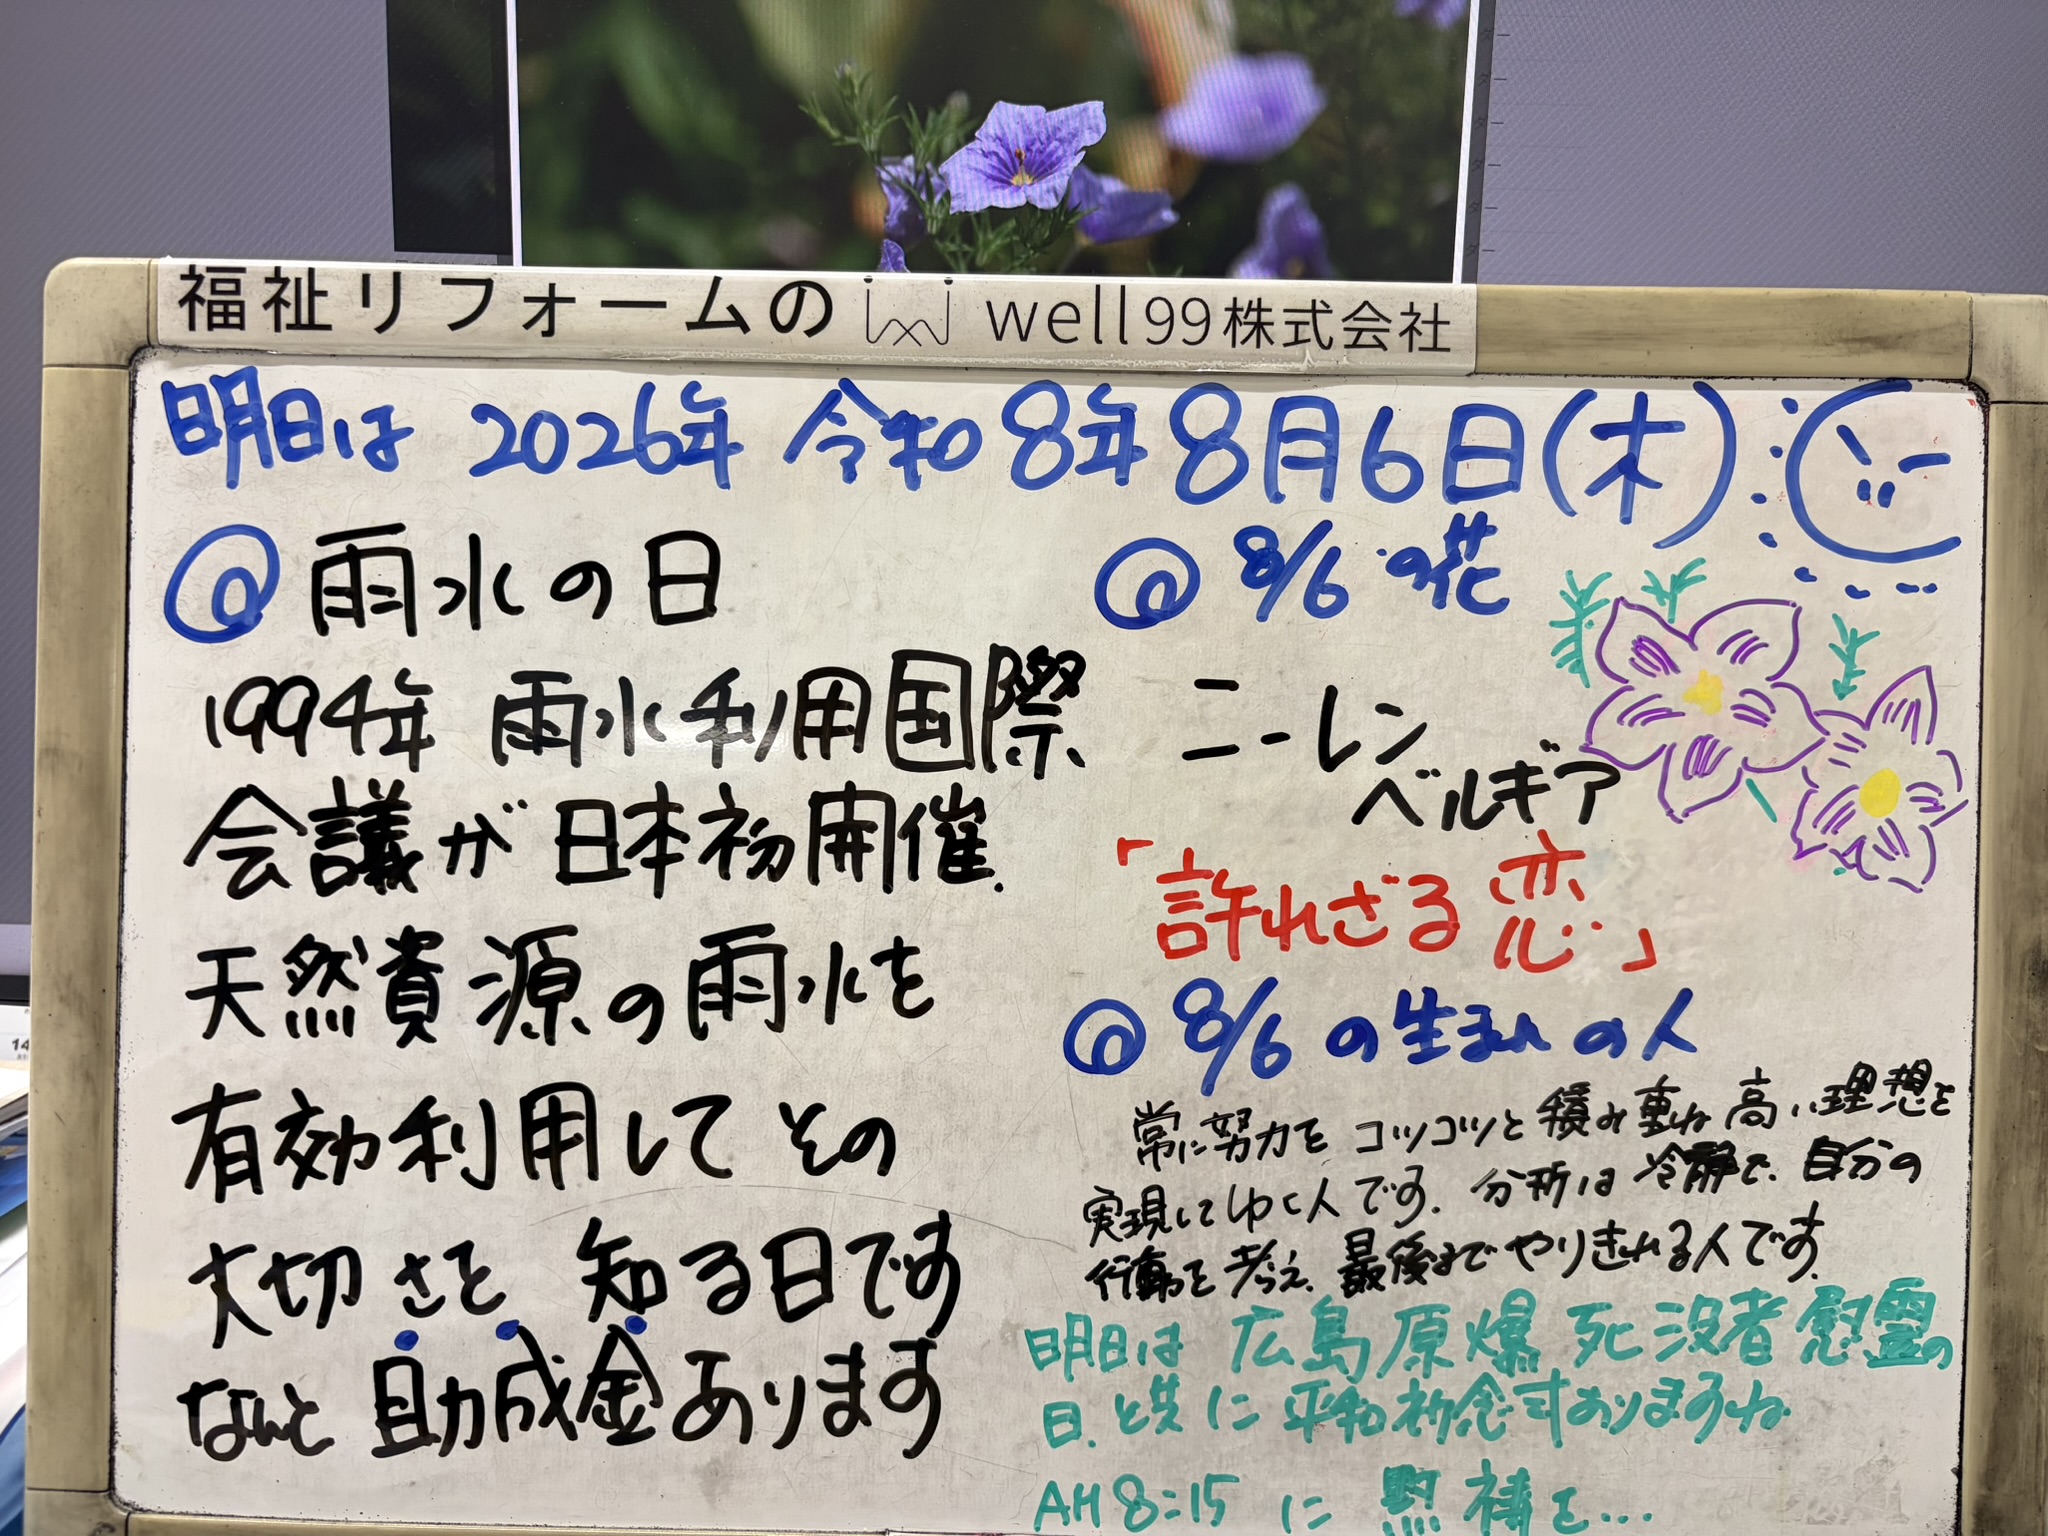 福祉リフォームの well99株式会社
明日は 2026年 令和8年8月6日(木)
@ 雨水の日
1994年 雨水利用国際
会議が日本初開催.
天然資源の雨水を
有効利用してその
大切さを知る日です
なんと助成金あります
@ 8/6の花
ニーレン
ベルギア
「許れざる恋」
@ 8/6の生まれの人
常に努力をコツコツと積み重ね高い理想を
実現してゆく人です. 分析は冷静で. 自分の
行動を考え. 最後までやりきれる人です.
明日は 広島原爆死没者慰霊の
日. と共に 平和祈念式ありますね
AM 8:15 に 黙祷を...